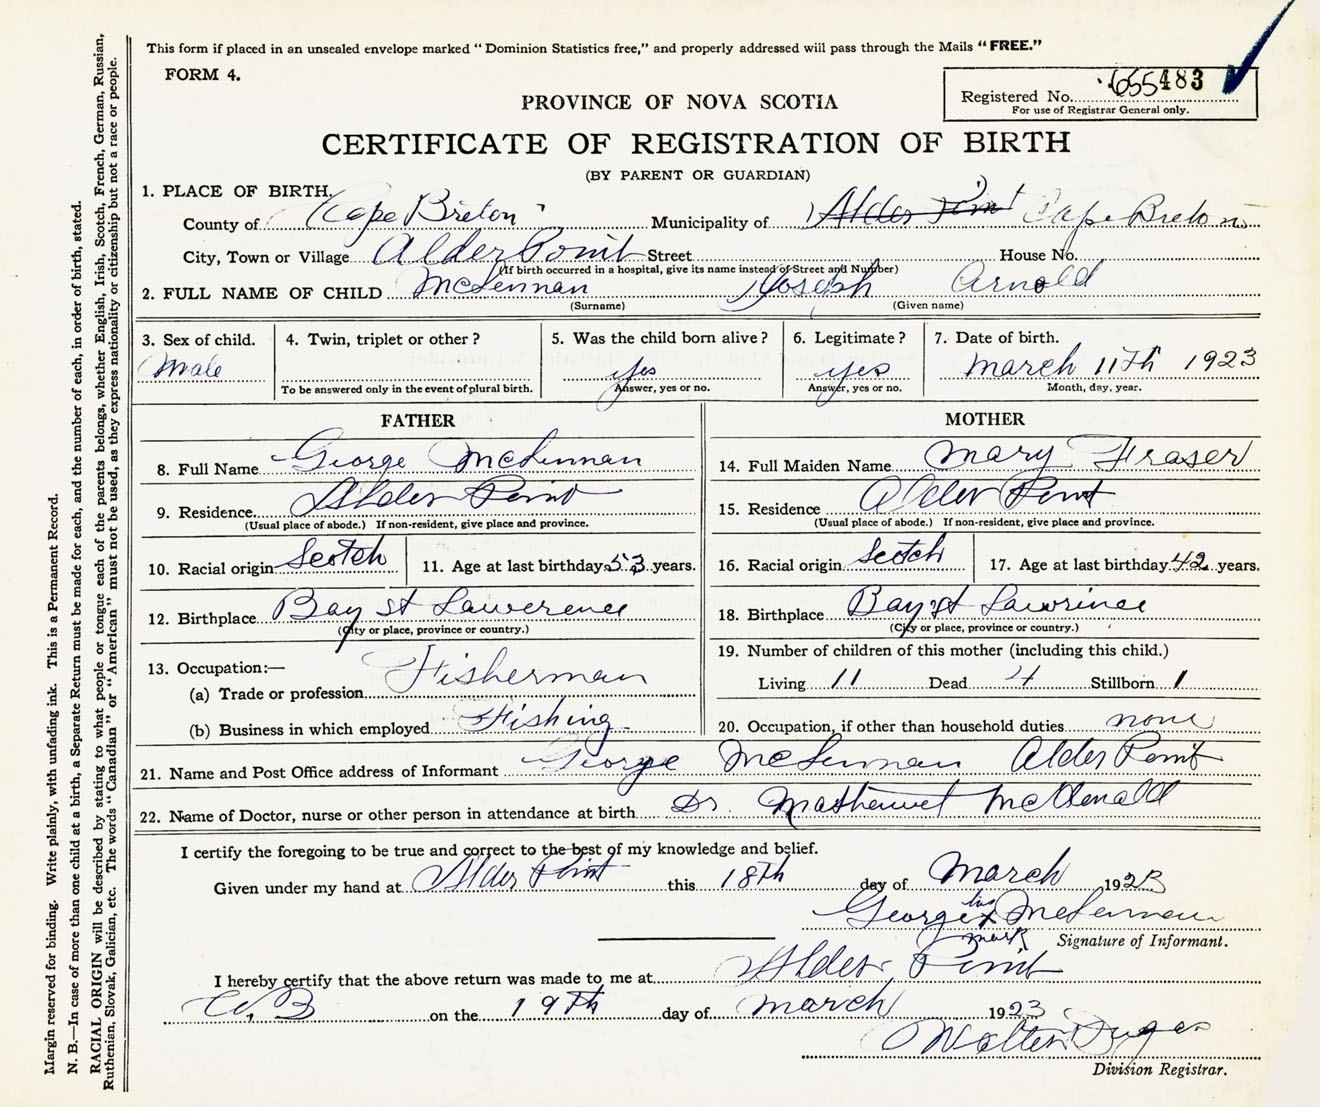 This form if placed in an unsealed envelope marked "Dominion Statistics free," and properly addressed will pass through the Mails "FREE."
FORM 4.
Registered No. 655483
For use of Registrar General only.
PROVINCE OF NOVA SCOTIA
CERTIFICATE OF REGISTRATION OF BIRTH
(BY PARENT OR GUARDIAN)
1. PLACE OF BIRTH.
County of Cape Breton Municipality of Alder Point Cape Breton
City, Town or Village Alder Point Street House No.
(If birth occurred in a hospital, give its name instead of Street and Number)
2. FULL NAME OF CHILD McLennan Joseph Arnold
(Surname) (Given name)
3. Sex of child. 4. Twin, triplet or other? 5. Was the child born alive? 6. Legitimate? 7. Date of birth.
Male yes yes March 11th 1923
To be answered only in the event of plural birth. Answer, yes or no. Answer, yes or no. Month, day, year.
FATHER MOTHER
8. Full Name George McLennan
14. Full Maiden Name Mary Fraser
9. Residence Alder Point
(Usual place of abode.) If non-resident, give place and province.
15. Residence Alder Point
(Usual place of abode.) If non-resident, give place and province.
10. Racial origin Scotch 11. Age at last birthday 53 years.
16. Racial origin Scotch 17. Age at last birthday 42 years.
12. Birthplace Bay st Lawerence
(City or place, province or country.)
18. Birthplace Bay st Lawrince
(City or place, province or country.)
13. Occupation:—
(a) Trade or profession Fisherman
(b) Business in which employed Fishing
19. Number of children of this mother (including this child.)
Living 11 Dead 4 Stillborn 1
20. Occupation, if other than household duties none
21. Name and Post Office address of Informant George McLennan Alder Point
22. Name of Doctor, nurse or other person in attendance at birth Dr. McDonald
I certify the foregoing to be true and correct to the best of my knowledge and belief.
Given under my hand at Alder Point this 18th day of March 1923
George his x mark McLennan
Signature of Informant.
I hereby certify that the above return was made to me at Alder Point
C.B on the 19th day of March 1923
Walter
Division Registrar.
Margin reserved for binding. Write plainly, with unfading ink. This is a Permanent Record.
N. B.—In case of more than one child at a birth, a Separate Return must be made for each, and the number of each, in order of birth, stated.
RACIAL ORIGIN will be described by stating to what people or tongue each of the parents belongs, whether English, Irish, Scotch, French, German, Russian,
Ruthenian, Slovak, Galician, etc. The words "Canadian" or "American" must not be used, as they express nationality or citizenship but not a race or people.